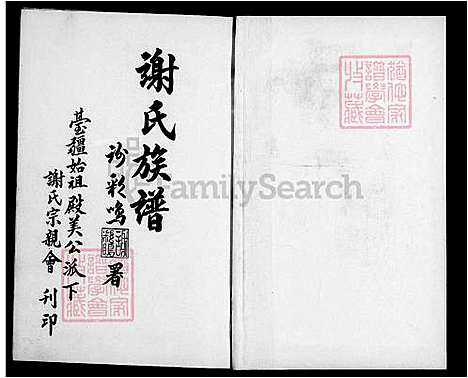 謝氏族譜
彩鳴 署
臺疆始祖殿美公派下
謝氏宗親會 刊印
譜學會
FamilySearch